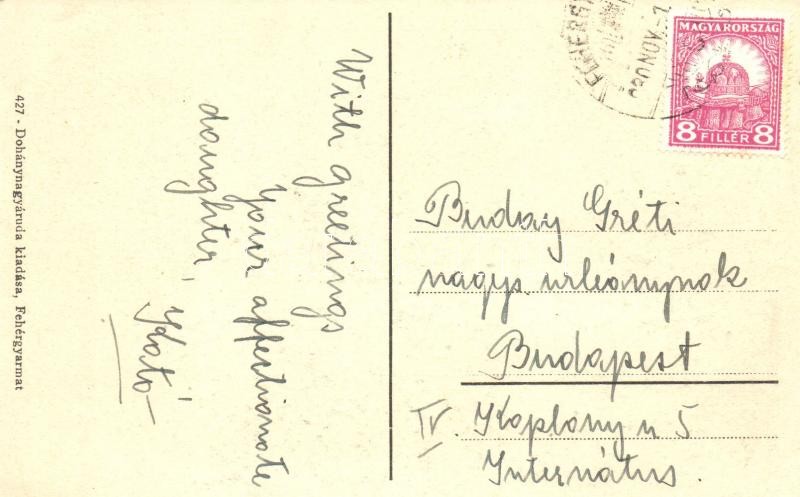 427 - Dohánynagyáruda kiadása, Fehérgyarmat
With greetings
Your affectionate
daughter,
Kató
MAGYARORSZÁG
8 FILLÉR 8
930 NOV.-7
Buday Gréti
nagys. urleánynak
Budapest
IV. Kaplony u 5
Internátus.